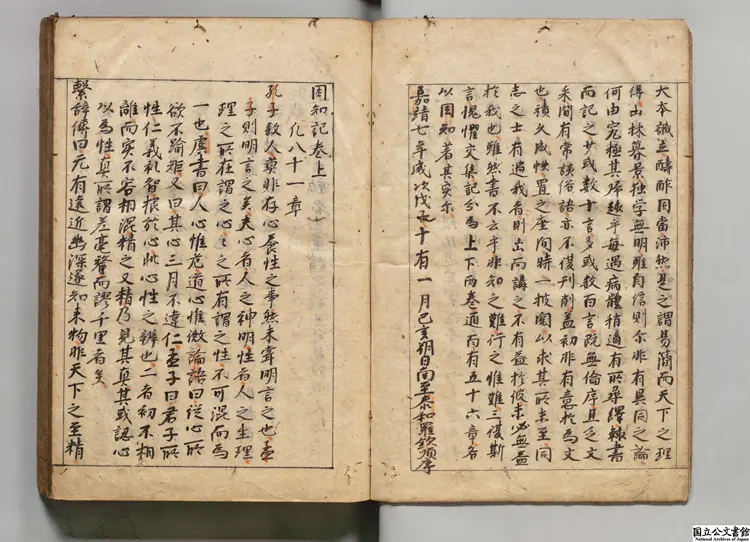 大本誠立酬酢固當沛然是之謂易簡而天下之理
得山林暮景独学無朋雖自信則尓非有異同之論
何由究極其歸趣乎每遇病體稍適有所尋繹輒書
而記之少或数十言多或数百言既無倫序且乏文
采間有常談俗語亦不復刊削蓋初非有意於為文
也積久成帙置之座間時一披閱以求其所未至同
志之士有過我者則出而講之不有益於彼未必無益
於我也雖然書不云乎非知之難行之惟難三復斯
言愧懼交集記分為上下兩卷通百有五十六章名
以困知著其実尓
嘉靖七年歲次戊子十有一月己亥朔日南至泰和羅欽順序
困知記卷上
凡八十一章
孔子教人莫非存心養性之事然未嘗明言之也孟
子則明言之矣夫心者人之神明性者人之生理
理之所在謂之心心之所有謂之性不可混而為
一也虞書曰人心惟危道心惟微論語曰従心所
欲不踰矩又曰其心三月不違仁孟子曰君子所
性仁義礼智根於心此心性之辨也二者初不相
離而实不容相混精之又精乃見其真其或認心
以為性真所謂差毫釐而謬千里者矣
繫辞傳曰无有遠近幽深遂知来物非天下之至精
国立公文書館
National Archives of Japan